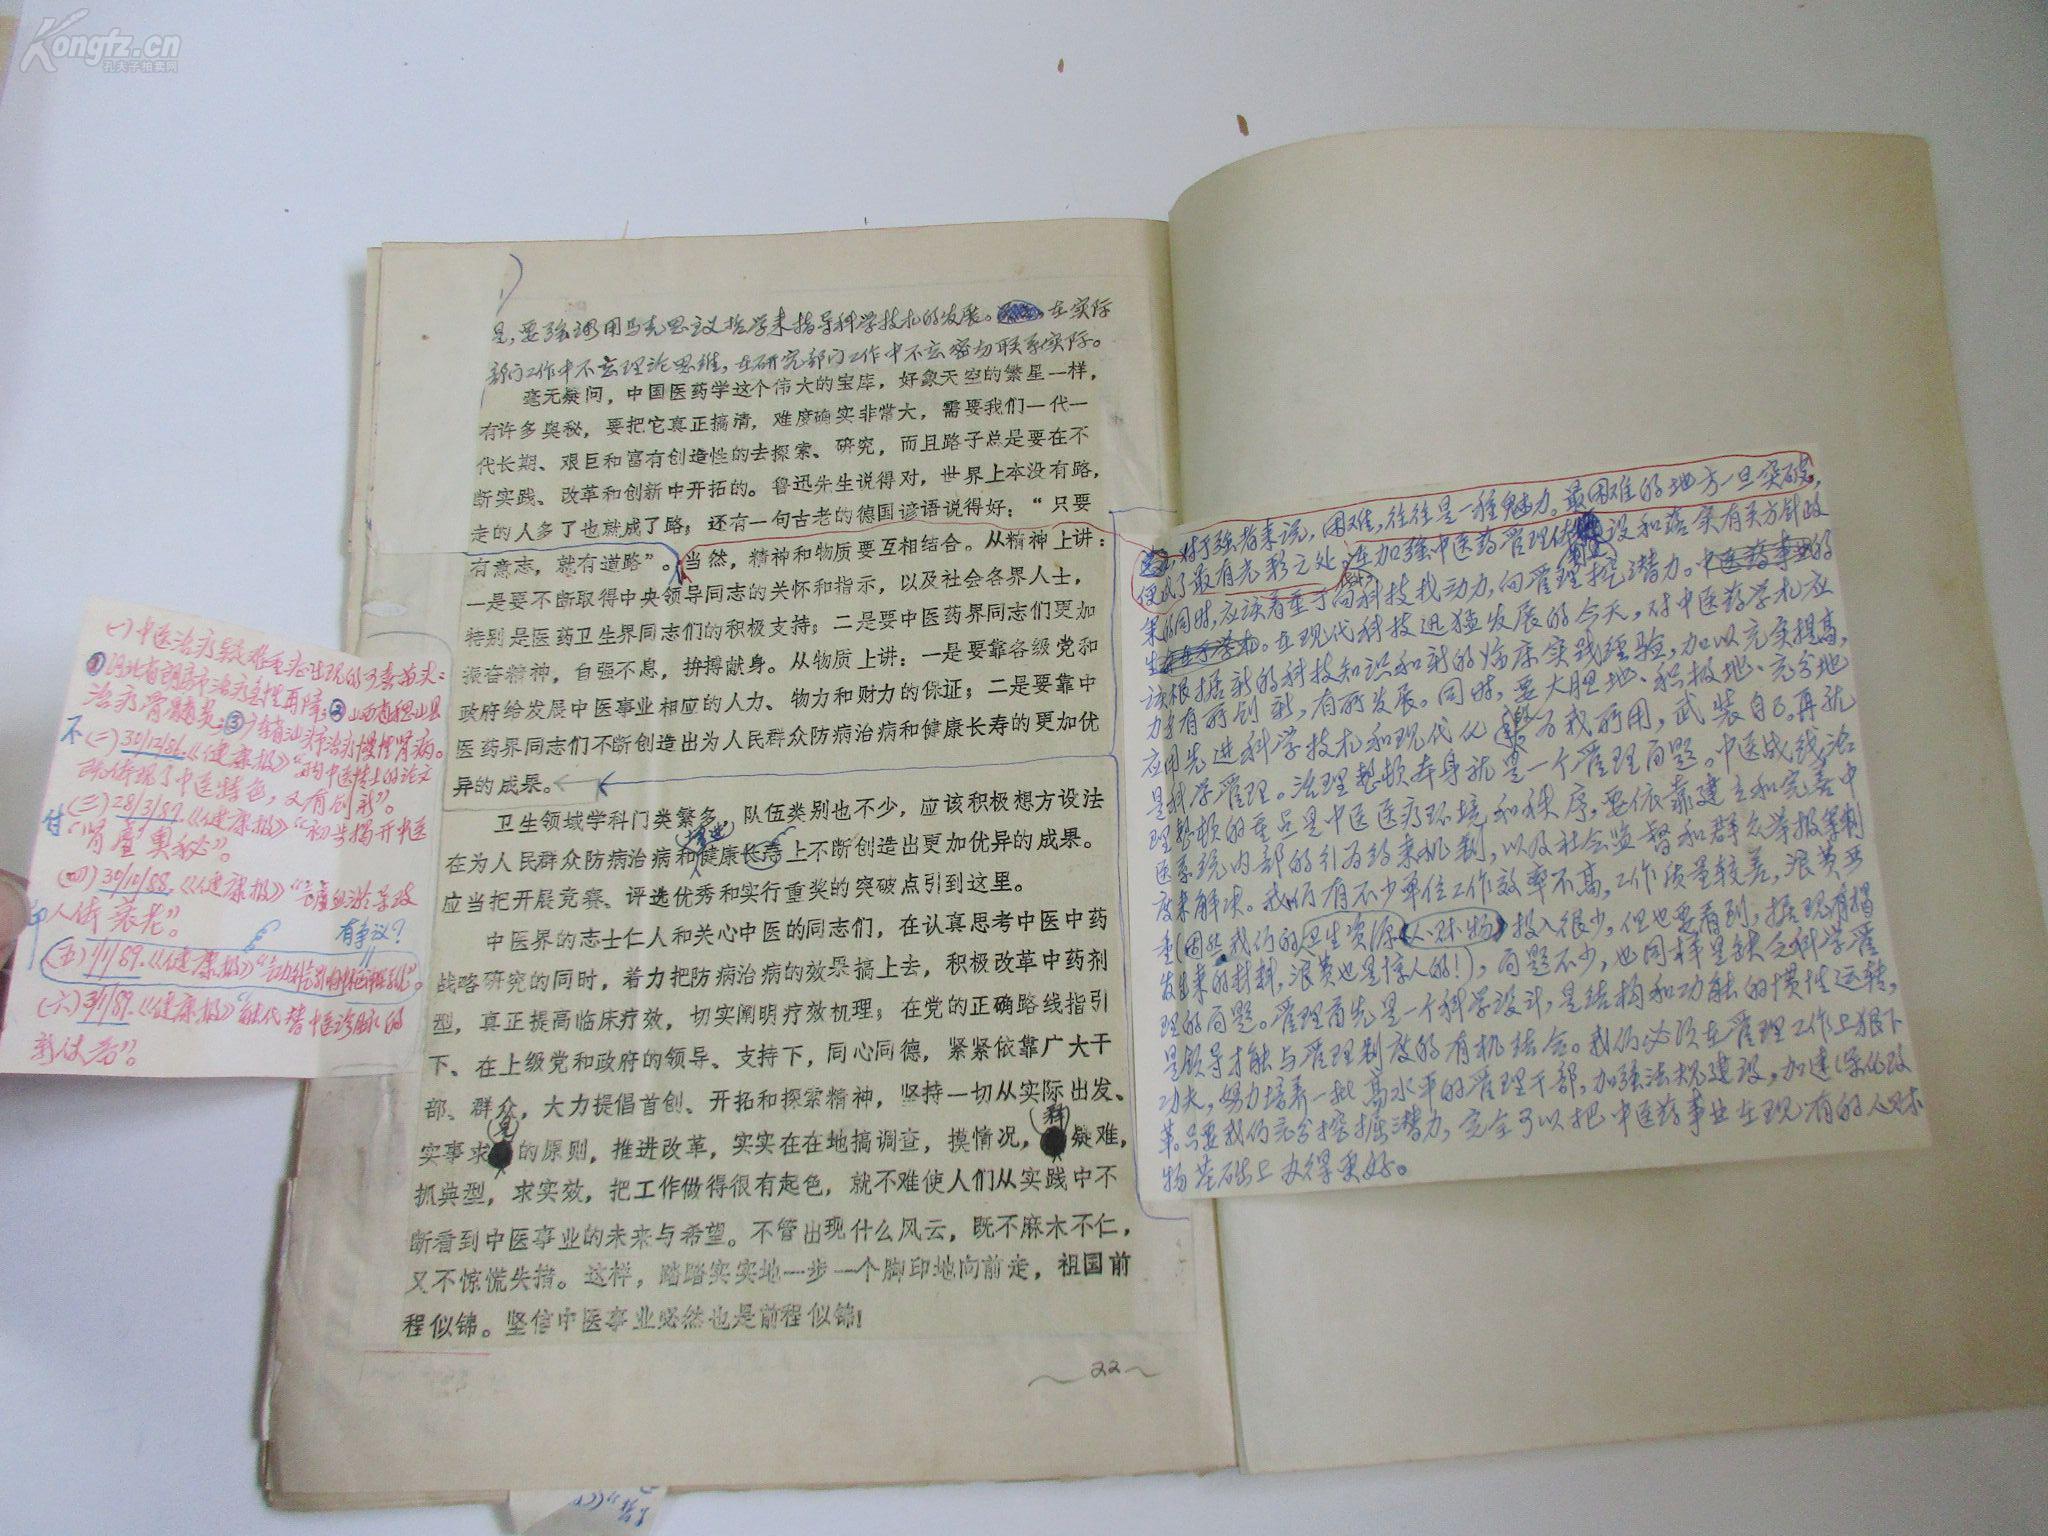 Kongfz.cn
孔夫子拍卖网
是，要强调用马克思主义哲学来指导科学技术的发展。在实际
部门工作中不忘理论思维，在研究部门工作中不忘密切联系实际。
毫无疑问，中国医药学这个伟大的宝库，好象天空的繁星一样，
有许多奥秘，要把它真正搞清，难度确实非常大，需要我们一代一
代长期、艰巨和富有创造性的去探索、研究，而且路子总是要在不
断实践、改革和创新中开拓的。鲁迅先生说得对，世界上本没有路，
走的人多了也就成了路；还有一句古老的德国谚语说得好：“只要
有意志，就有道路”。当然，精神和物质要互相结合。从精神上讲：
一是要不断取得中央领导同志的关怀和指示，以及社会各界人士，
特别是医药卫生界同志们的积极支持；二是要中医药界同志们更加
振奋精神，自强不息，拚搏献身。从物质上讲：一是要靠各级党和
政府给发展中医事业相应的人力、物力和财力的保证；二是要靠中
医药界同志们不断创造出为人民群众防病治病和健康长寿的更加优
异的成果。
卫生领域学科门类繁多，队伍类别也不少，应该积极想方设法
在为人民群众防病治病和健康长寿上不断创造出更加优异的成果。
应当把开展竞赛、评选优秀和实行重奖的突破点引到这里。
中医界的志士仁人和关心中医的同志们，在认真思考中医中药
战略研究的同时，着力把防病治病的效果搞上去，积极改革中药剂
型，真正提高临床疗效，切实阐明疗效机理；在党的正确路线指引
下、在上级党和政府的领导、支持下，同心同德，紧紧依靠广大干
部、群众，大力提倡首创、开拓和探索精神，坚持一切从实际出发、
实事求是的原则，推进改革，实实在在地搞调查，摸情况，科疑难，
抓典型，求实效，把工作做得很有起色，就不难使人们从实践中不
断看到中医事业的未来与希望。不管出现什么风云，既不麻木不仁，
又不惊慌失措。这样，踏踏实实地一步一个脚印地向前走，祖国前
程似锦。坚信中医事业必然也是前程似锦！
22
(一)中医治疗较难重症出现的可喜苗头：
①河北省廊坊市治疗急性再障；②山西省稷山县
治疗骨髓炎；③广东省汕头市治疗慢性肾病。
(二)30/12/86.《健康报》“中医博士的论文
既体现了中医特色，又有创新”。
(三)28/3/87.《健康报》“初步揭开中医
“肾虚”奥秘”。
(四)30/10/88.《健康报》“瘀血滞导致
人体衰老”。
有争议？
(五)1/1/89.《健康报》
(六)3/1/89.《健康报》“能代替中医诊脉的
新仪器”。
不
付
印
对于强者来说，困难，往往是一种魅力。最困难的地方一旦突破，
便成了最有光彩之处。在加强中医药管理体制建设和落实有关方针政
策的同时，应该着重于向科技找动力，向管理挖潜力。中医药事业的
在现代科技迅猛发展的今天，对中医药学术应
该根据新的科技知识和新的临床实践经验，加以充实提高，
力求有所创新，有所发展。同时，要大胆地、积极地、充分地
应用先进科学技术和现代化为我所用，武装自己。再就
是科学管理。治理整顿本身就是一个管理问题。中医战线治
理整顿的重点是中医医疗环境和秩序，要依靠建立和完善中
医系统内部的引为约束机制，以及社会监督和群众举报等制
度来解决。我们有不少单位工作效率不高，工作质量较差，浪费严
重（固然我们的卫生资源（人财物）投入很少，但也要看到，据现有揭
发出来的材料，浪费也是惊人的！），问题不少，也同样是缺乏科学管
理的问题。管理首先是一个科学设计，是结构和功能的惯性运转，
是领导才能与管理制度的有机结合。我们必须在管理工作上狠下
功夫，努力培养一批高水平的管理干部，加强法规建设，加速深化改
革。只要我们充分挖掘潜力，完全可以把中医药事业在现有的人财
物基础上办得更好。